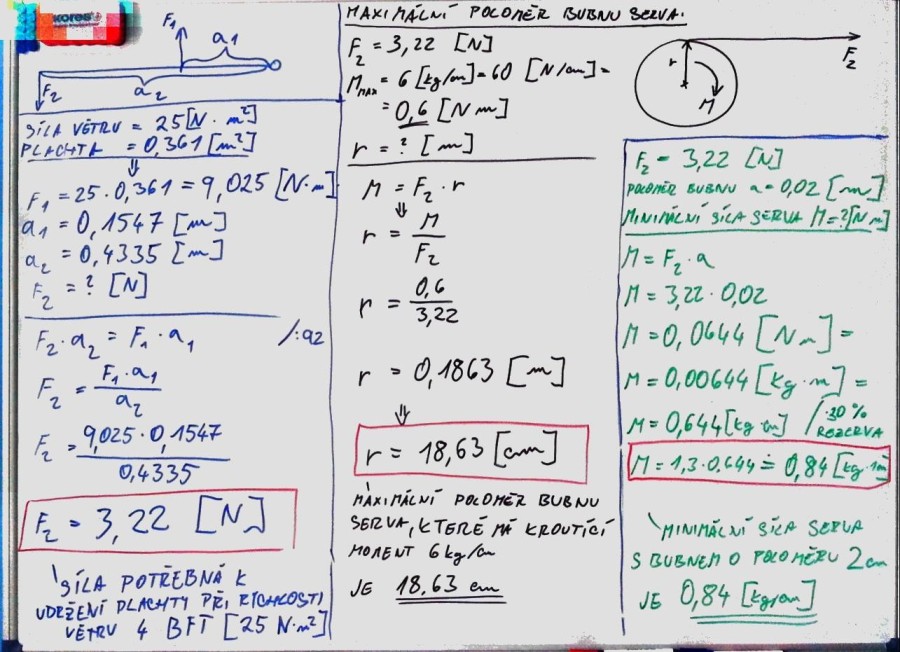 KORES
F₁
a₁
F₂
a₂
SÍLA VĚTRU = 25[N · m²]
PLACHTA = 0,361 [m²]
⇓
F₁ = 25 · 0,361 = 9,025 [N·m]
a₁ = 0,1547 [m]
a₂ = 0,4335 [m]
F₂ = ? [N]
F₂ · a₂ = F₁ · a₁ /:a₂
F₂ = F₁ · a₁ / a₂
F₂ = 9,025 · 0,1547 / 0,4335
F₂ = 3,22 [N]
SÍLA POTŘEBNÁ K
UDRŽENÍ PLACHTY PŘI RYCHLOSTI
VĚTRU 4 BFT [25 N·m²]
MAXIMÁLNÍ POLOMĚR BUBNU SERVA:
F₂ = 3,22 [N]
M_MAX = 6 [kg/cm] = 60 [N/cm] =
= 0,6 [N m]
r = ? [m]
M = F₂ · r
⇓
r = M / F₂
r = 0,6 / 3,22
r = 0,1863 [m]
⇓
r = 18,63 [cm]
MAXIMÁLNÍ POLOMĚR BUBNU
SERVA, KTERÉ MÁ KROUTÍCÍ
MOMENT 6 kg/cm
JE 18.63 cm
r
M
F₂
F₂ = 3,22 [N]
POLOMĚR BUBNU a = 0,02 [m]
MINIMÁLNÍ SÍLA SERVA M=?[Nm]
M = F₂ · a
M = 3,22 · 0,02
M = 0,0644 [Nm] =
M = 0,00644 [kg · m] =
M = 0,644 [kg·cm] /·30 %
REZERVA
M = 1,3 · 0,644 ≐ 0,84 [kg·cm]
MINIMÁLNÍ SÍLA SERVA
S BUBNEM O POLOMĚRU 2cm
JE 0,84 [kg/cm]